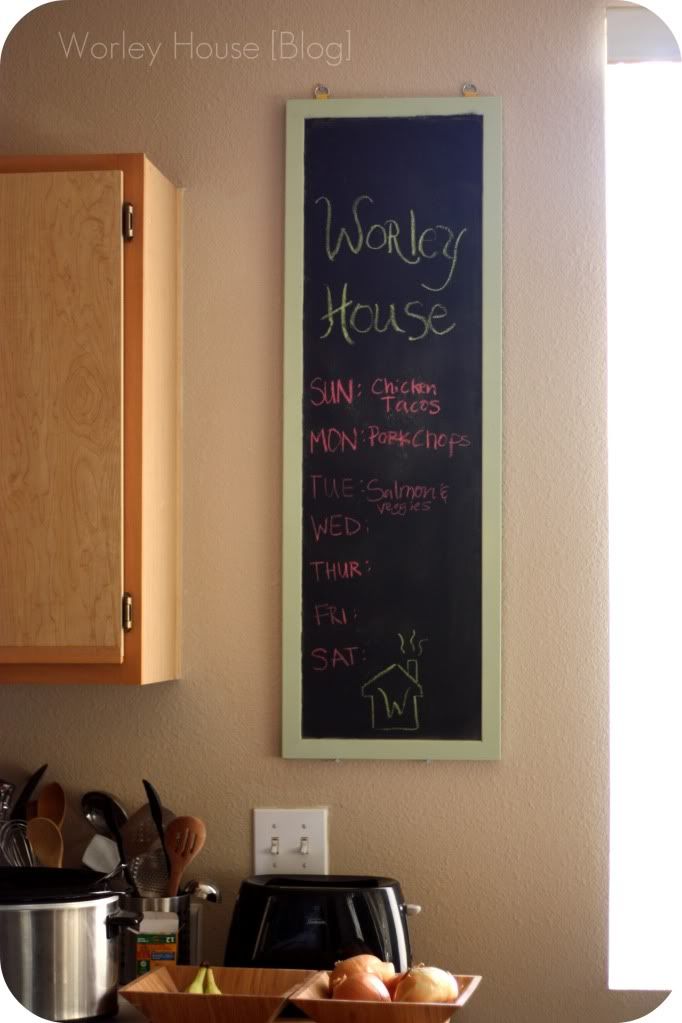 Worley House [Blog]
Worley
House
SUN: Chicken
Tacos
MON: Pork Chops
TUE: Salmon &
veggies
WED:
THUR:
FRI:
SAT:
W